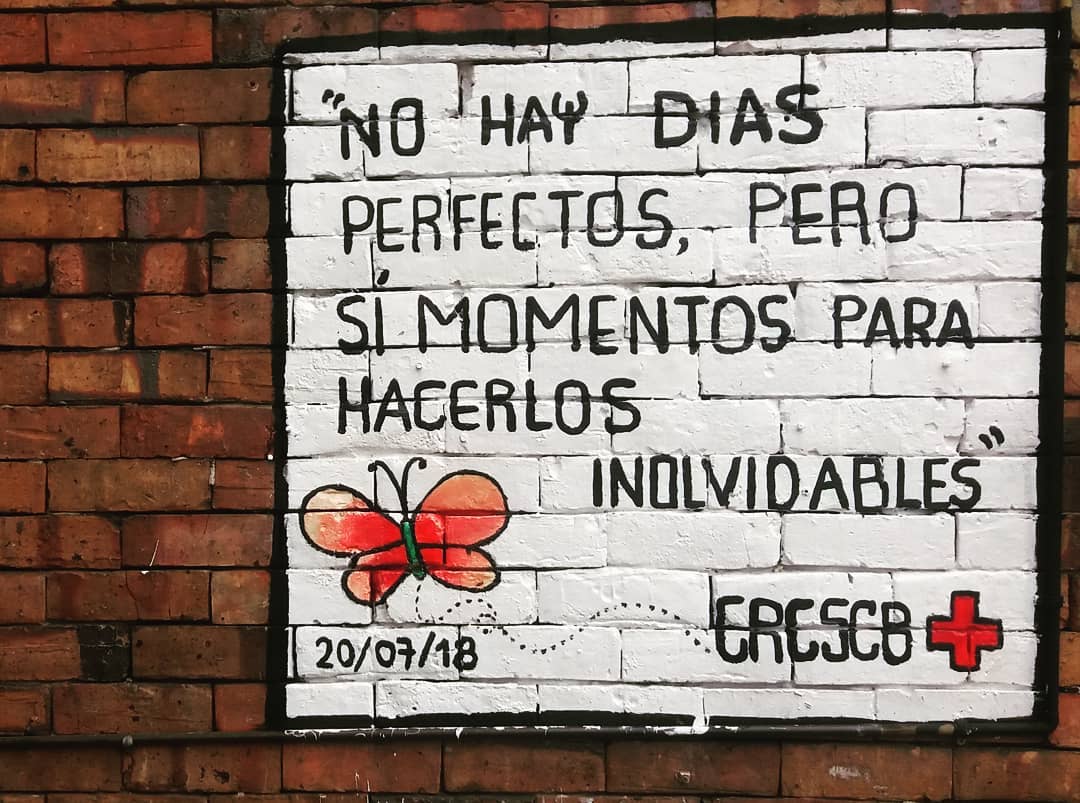 "NO HAY DIAS
PERFECTOS, PERO
SÍ MOMENTOS PARA
HACERLOS
INOLVIDABLES"
20/07/18
CRCSCB